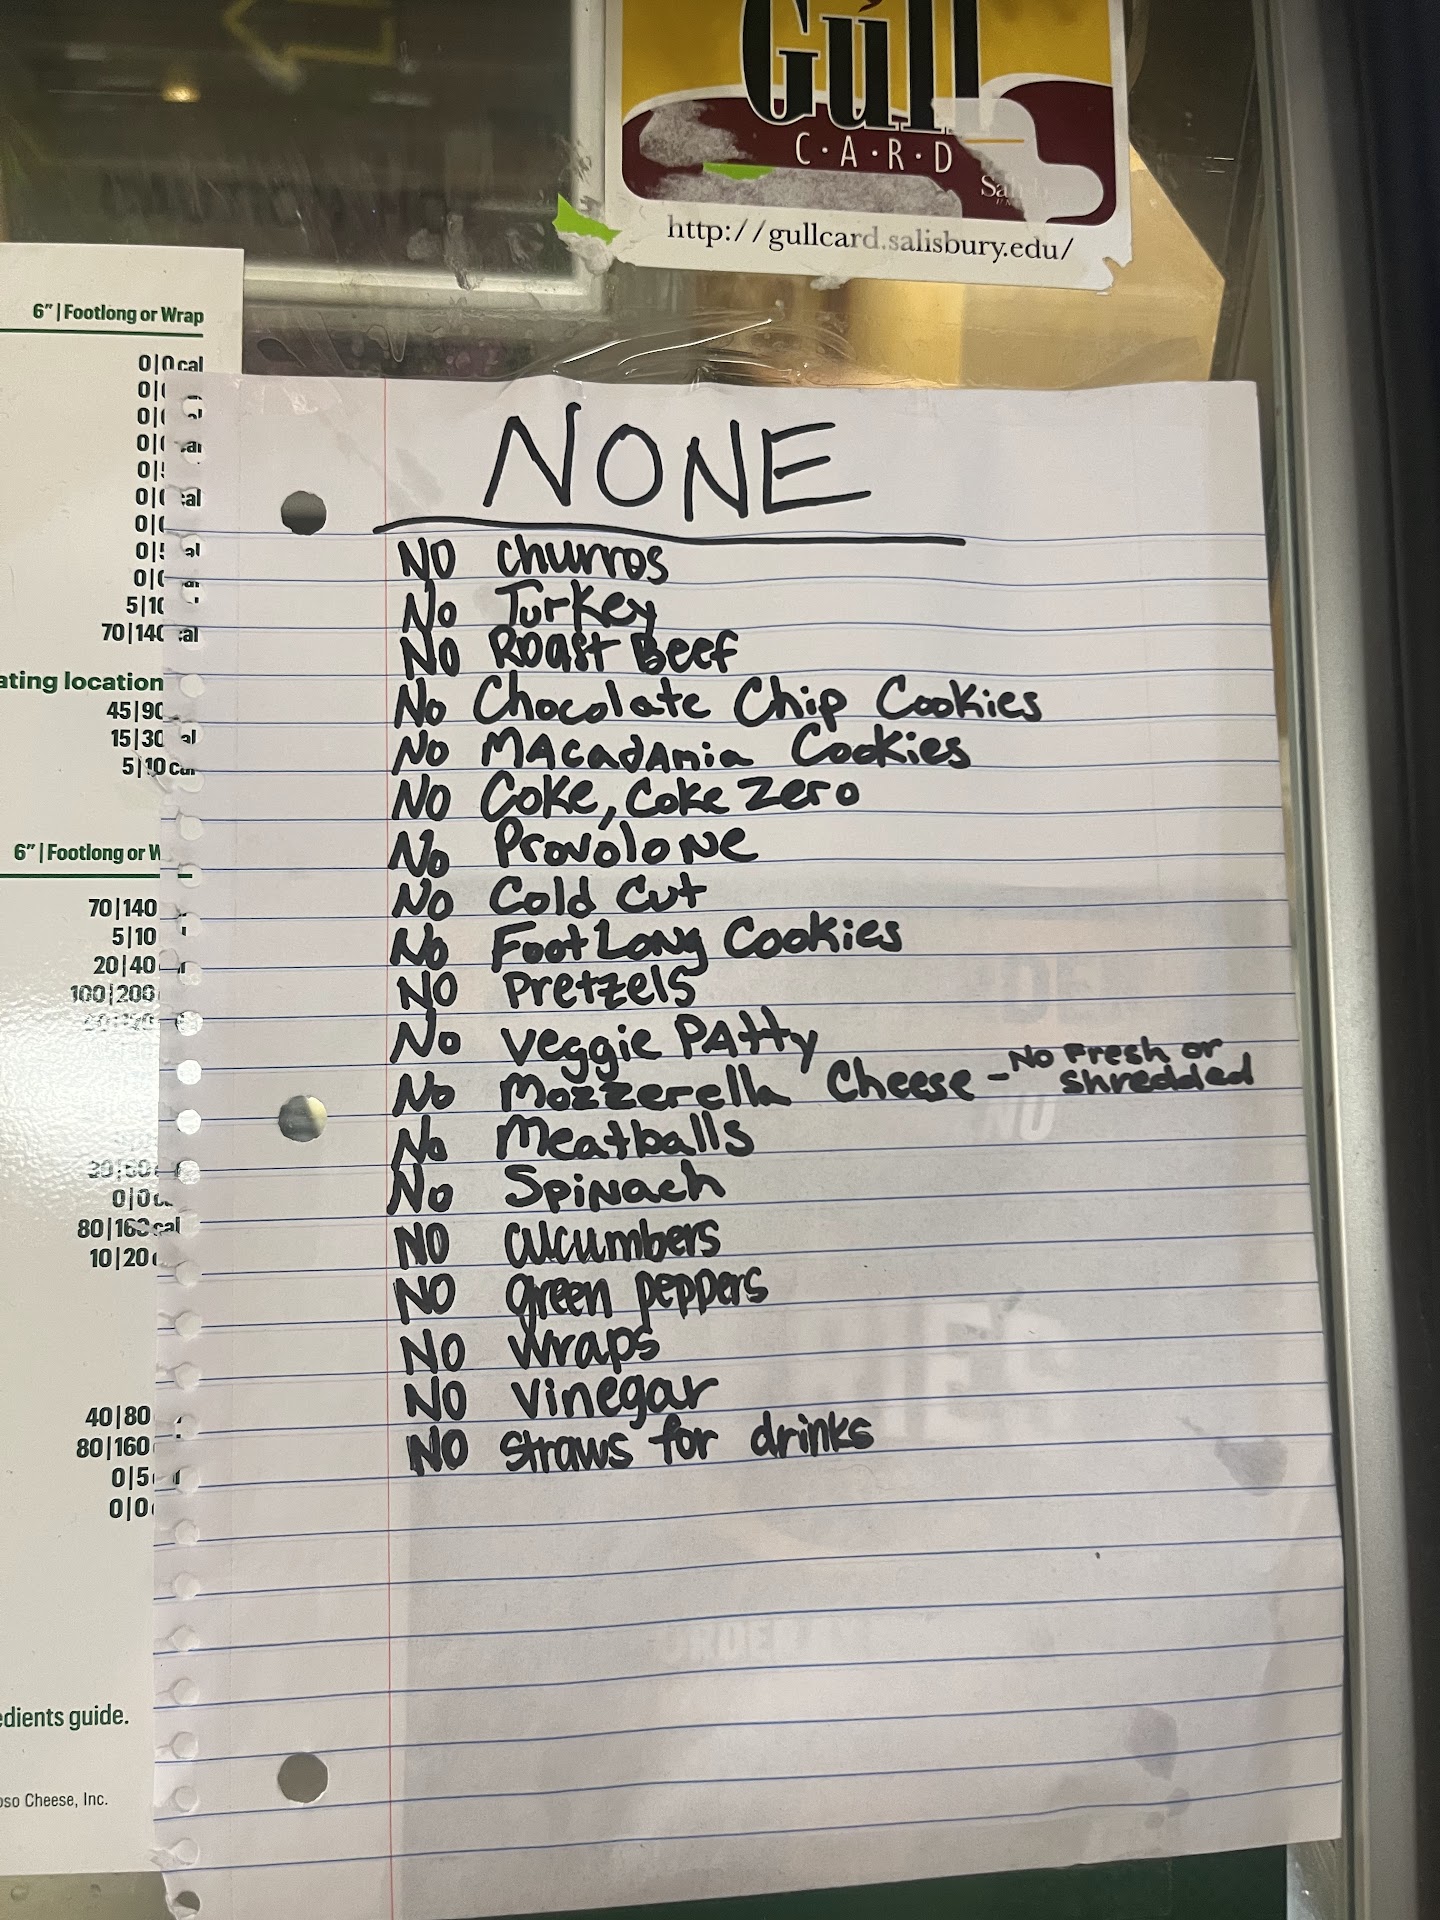 Gull
C·A·R·D
http://gullcard.salisbury.edu/
6" | Footlong or Wrap
0|0 cal
5|10
70|140 cal
ating location
45|90
15|30 al
5|10 cal
6" | Footlong or W
70|140
5|10
20|40
100|200
0|0
80|160 cal
10|20
40|80
80|160
0|5
0|0
edients guide.
oso Cheese, Inc.
NONE
NO churros
No Turkey
No Roast Beef
No Chocolate Chip Cookies
No Macadamia Cookies
NO Coke, Coke Zero
No Provolone
No Cold Cut
No Foot Long Cookies
NO Pretzels
No Veggie Patty
No Mozzerella Cheese - No Fresh or shredded
No Meatballs
No Spinach
NO cucumbers
NO green peppers
NO wraps
NO vinegar
NO straws for drinks